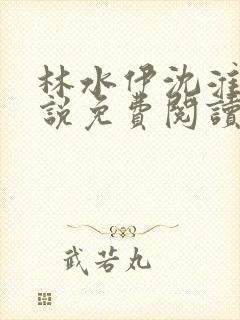 林水伊沈淮
說免費閱讀
武若丸